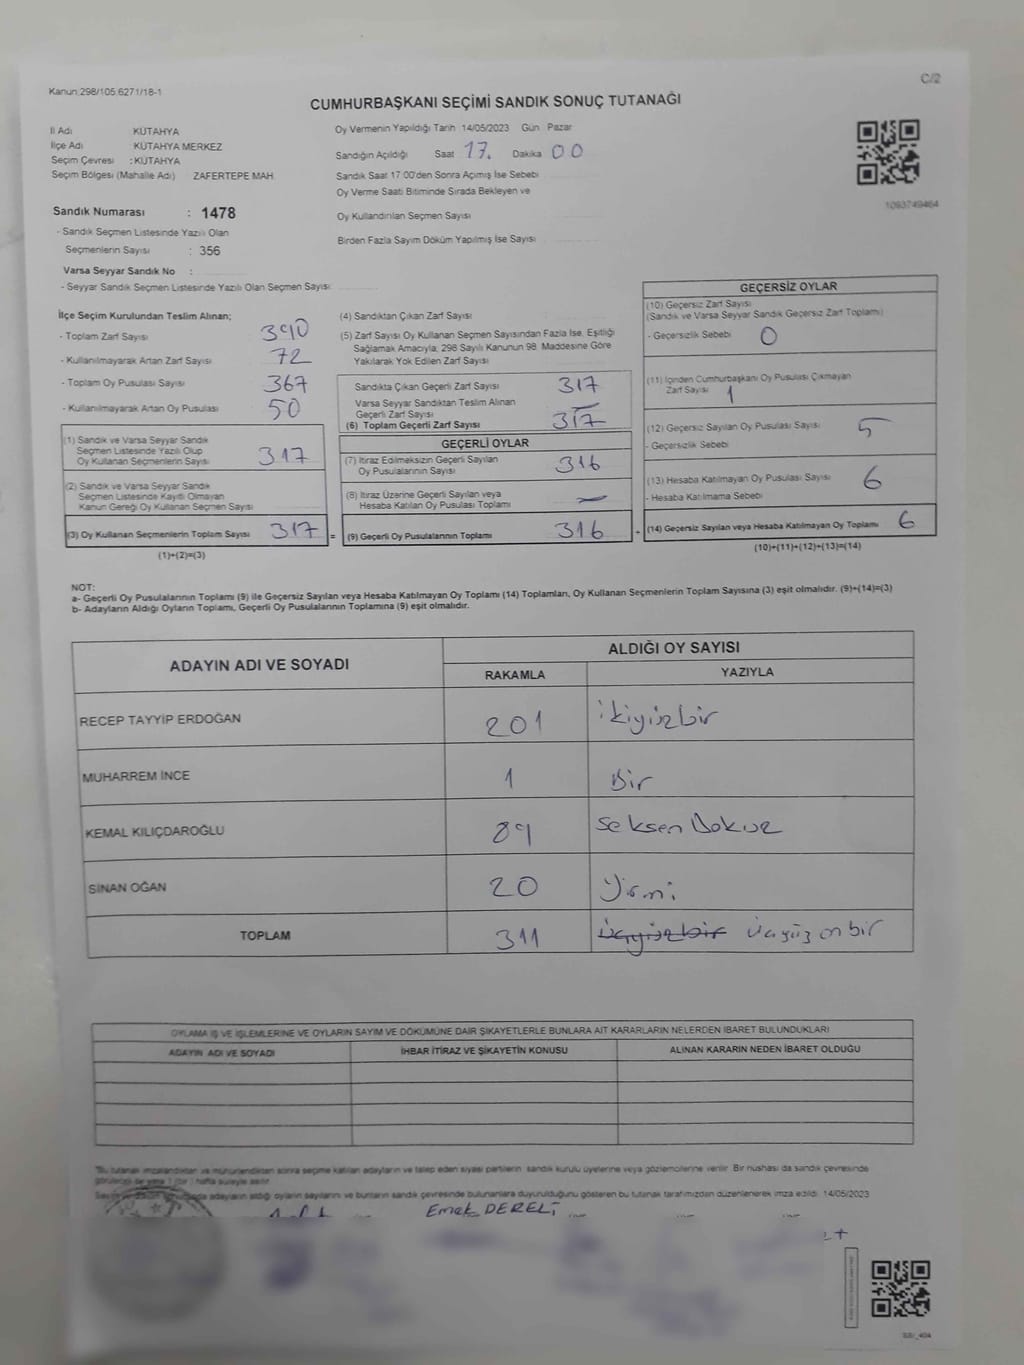 C/2
Kanun:298/105.6271/18-1
CUMHURBAŞKANI SEÇİMİ SANDIK SONUÇ TUTANAĞI
İl Adı KÜTAHYA
İlçe Adı KÜTAHYA MERKEZ
Seçim Çevresi : KÜTAHYA
Seçim Bölgesi (Mahalle Adı) ZAFERTEPE MAH.
Oy Vermenin Yapıldığı Tarih 14/05/2023 Gün Pazar
Sandığın Açıldığı Saat 17. Dakika 00
Sandık Saat 17:00'den Sonra Açılmış İse Sebebi
Oy Verme Saati Bitiminde Sırada Bekleyen ve
Oy Kullandırılan Seçmen Sayısı
Birden Fazla Sayım Döküm Yapılmış İse Sayısı
1093749464
Sandık Numarası : 1478
- Sandık Seçmen Listesinde Yazılı Olan
Seçmenlerin Sayısı : 356
Varsa Seyyar Sandık No :
- Seyyar Sandık Seçmen Listesinde Yazılı Olan Seçmen Sayısı:
İlçe Seçim Kurulundan Teslim Alınan;
- Toplam Zarf Sayısı 390
- Kullanılmayarak Artan Zarf Sayısı 72
- Toplam Oy Pusulası Sayısı 367
- Kullanılmayarak Artan Oy Pusulası 50
(1) Sandık ve Varsa Seyyar Sandık
Seçmen Listesinde Yazılı Olup
Oy Kullanan Seçmenlerin Sayısı 317
(2) Sandık ve Varsa Seyyar Sandık
Seçmen Listesinde Kayıtlı Olmayan
Kanun Gereği Oy Kullanan Seçmen Sayısı
(3) Oy Kullanan Seçmenlerin Toplam Sayısı 317 =
(1)+(2)=(3)
(4) Sandıktan Çıkan Zarf Sayısı
(5) Zarf Sayısı Oy Kullanan Seçmen Sayısından Fazla İse, Eşitliği
Sağlamak Amacıyla, 298 Sayılı Kanunun 98. Maddesine Göre
Yakılarak Yok Edilen Zarf Sayısı
Sandıkta Çıkan Geçerli Zarf Sayısı 317
Varsa Seyyar Sandıktan Teslim Alınan
Geçerli Zarf Sayısı
(6) Toplam Geçerli Zarf Sayısı 317
GEÇERLİ OYLAR
(7) İtiraz Edilmeksizin Geçerli Sayılan
Oy Pusulalarının Sayısı 316
(8) İtiraz Üzerine Geçerli Sayılan veya
Hesaba Katılan Oy Pusulası Toplamı
(9) Geçerli Oy Pusulalarının Toplamı 316 +
GEÇERSİZ OYLAR
(10) Geçersiz Zarf Sayısı
(Sandık ve Varsa Seyyar Sandık Geçersiz Zarf Toplamı)
- Geçersizlik Sebebi 0
(11) İçinden Cumhurbaşkanı Oy Pusulası Çıkmayan
Zarf Sayısı 1
(12) Geçersiz Sayılan Oy Pusulası Sayısı 5
- Geçersizlik Sebebi
(13) Hesaba Katılmayan Oy Pusulası Sayısı 6
- Hesaba Katılmama Sebebi
(14) Geçersiz Sayılan veya Hesaba Katılmayan Oy Toplamı 6
(10)+(11)+(12)+(13)=(14)
NOT:
a- Geçerli Oy Pusulalarının Toplamı (9) ile Geçersiz Sayılan veya Hesaba Katılmayan Oy Toplamı (14) Toplamları, Oy Kullanan Seçmenlerin Toplam Sayısına (3) eşit olmalıdır. (9)+(14)=(3)
b- Adayların Aldığı Oyların Toplamı, Geçerli Oy Pusulalarının Toplamına (9) eşit olmalıdır.
ADAYIN ADI VE SOYADI ALDIĞI OY SAYISI
RAKAMLA YAZIYLA
RECEP TAYYİP ERDOĞAN 201 ikiyüzbir
MUHARREM İNCE 1 Bir
KEMAL KILIÇDAROĞLU 89 Seksen Dokuz
SİNAN OĞAN 20 Yirmi
TOPLAM 311 Üçyüzbir üçyüz onbir
OYLAMA İŞ VE İŞLEMLERİNE VE OYLARIN SAYIM VE DÖKÜMÜNE DAİR ŞİKAYETLERLE BUNLARA AİT KARARLARIN NELERDEN İBARET BULUNDUKLARI
ADAYIN ADI VE SOYADI İHBAR İTİRAZ VE ŞİKAYETİN KONUSU ALINAN KARARIN NEDEN İBARET OLDUĞU
Bu tutanak imzalandıktan ve mühürlendikten sonra seçime katılan adayların ve talep eden siyasi partilerin sandık kurulu üyelerine veya gözlemcilerine verilir. Bir nüshası da sandık çevresinde
adayların aldığı oyların sayılarını ve bunların sandık çevresinde bulunanlara duyurulduğunu gösteren bu tutanak tarafımızdan düzenlenerek imza edildi. 14/05/2023
Emek DERELİ